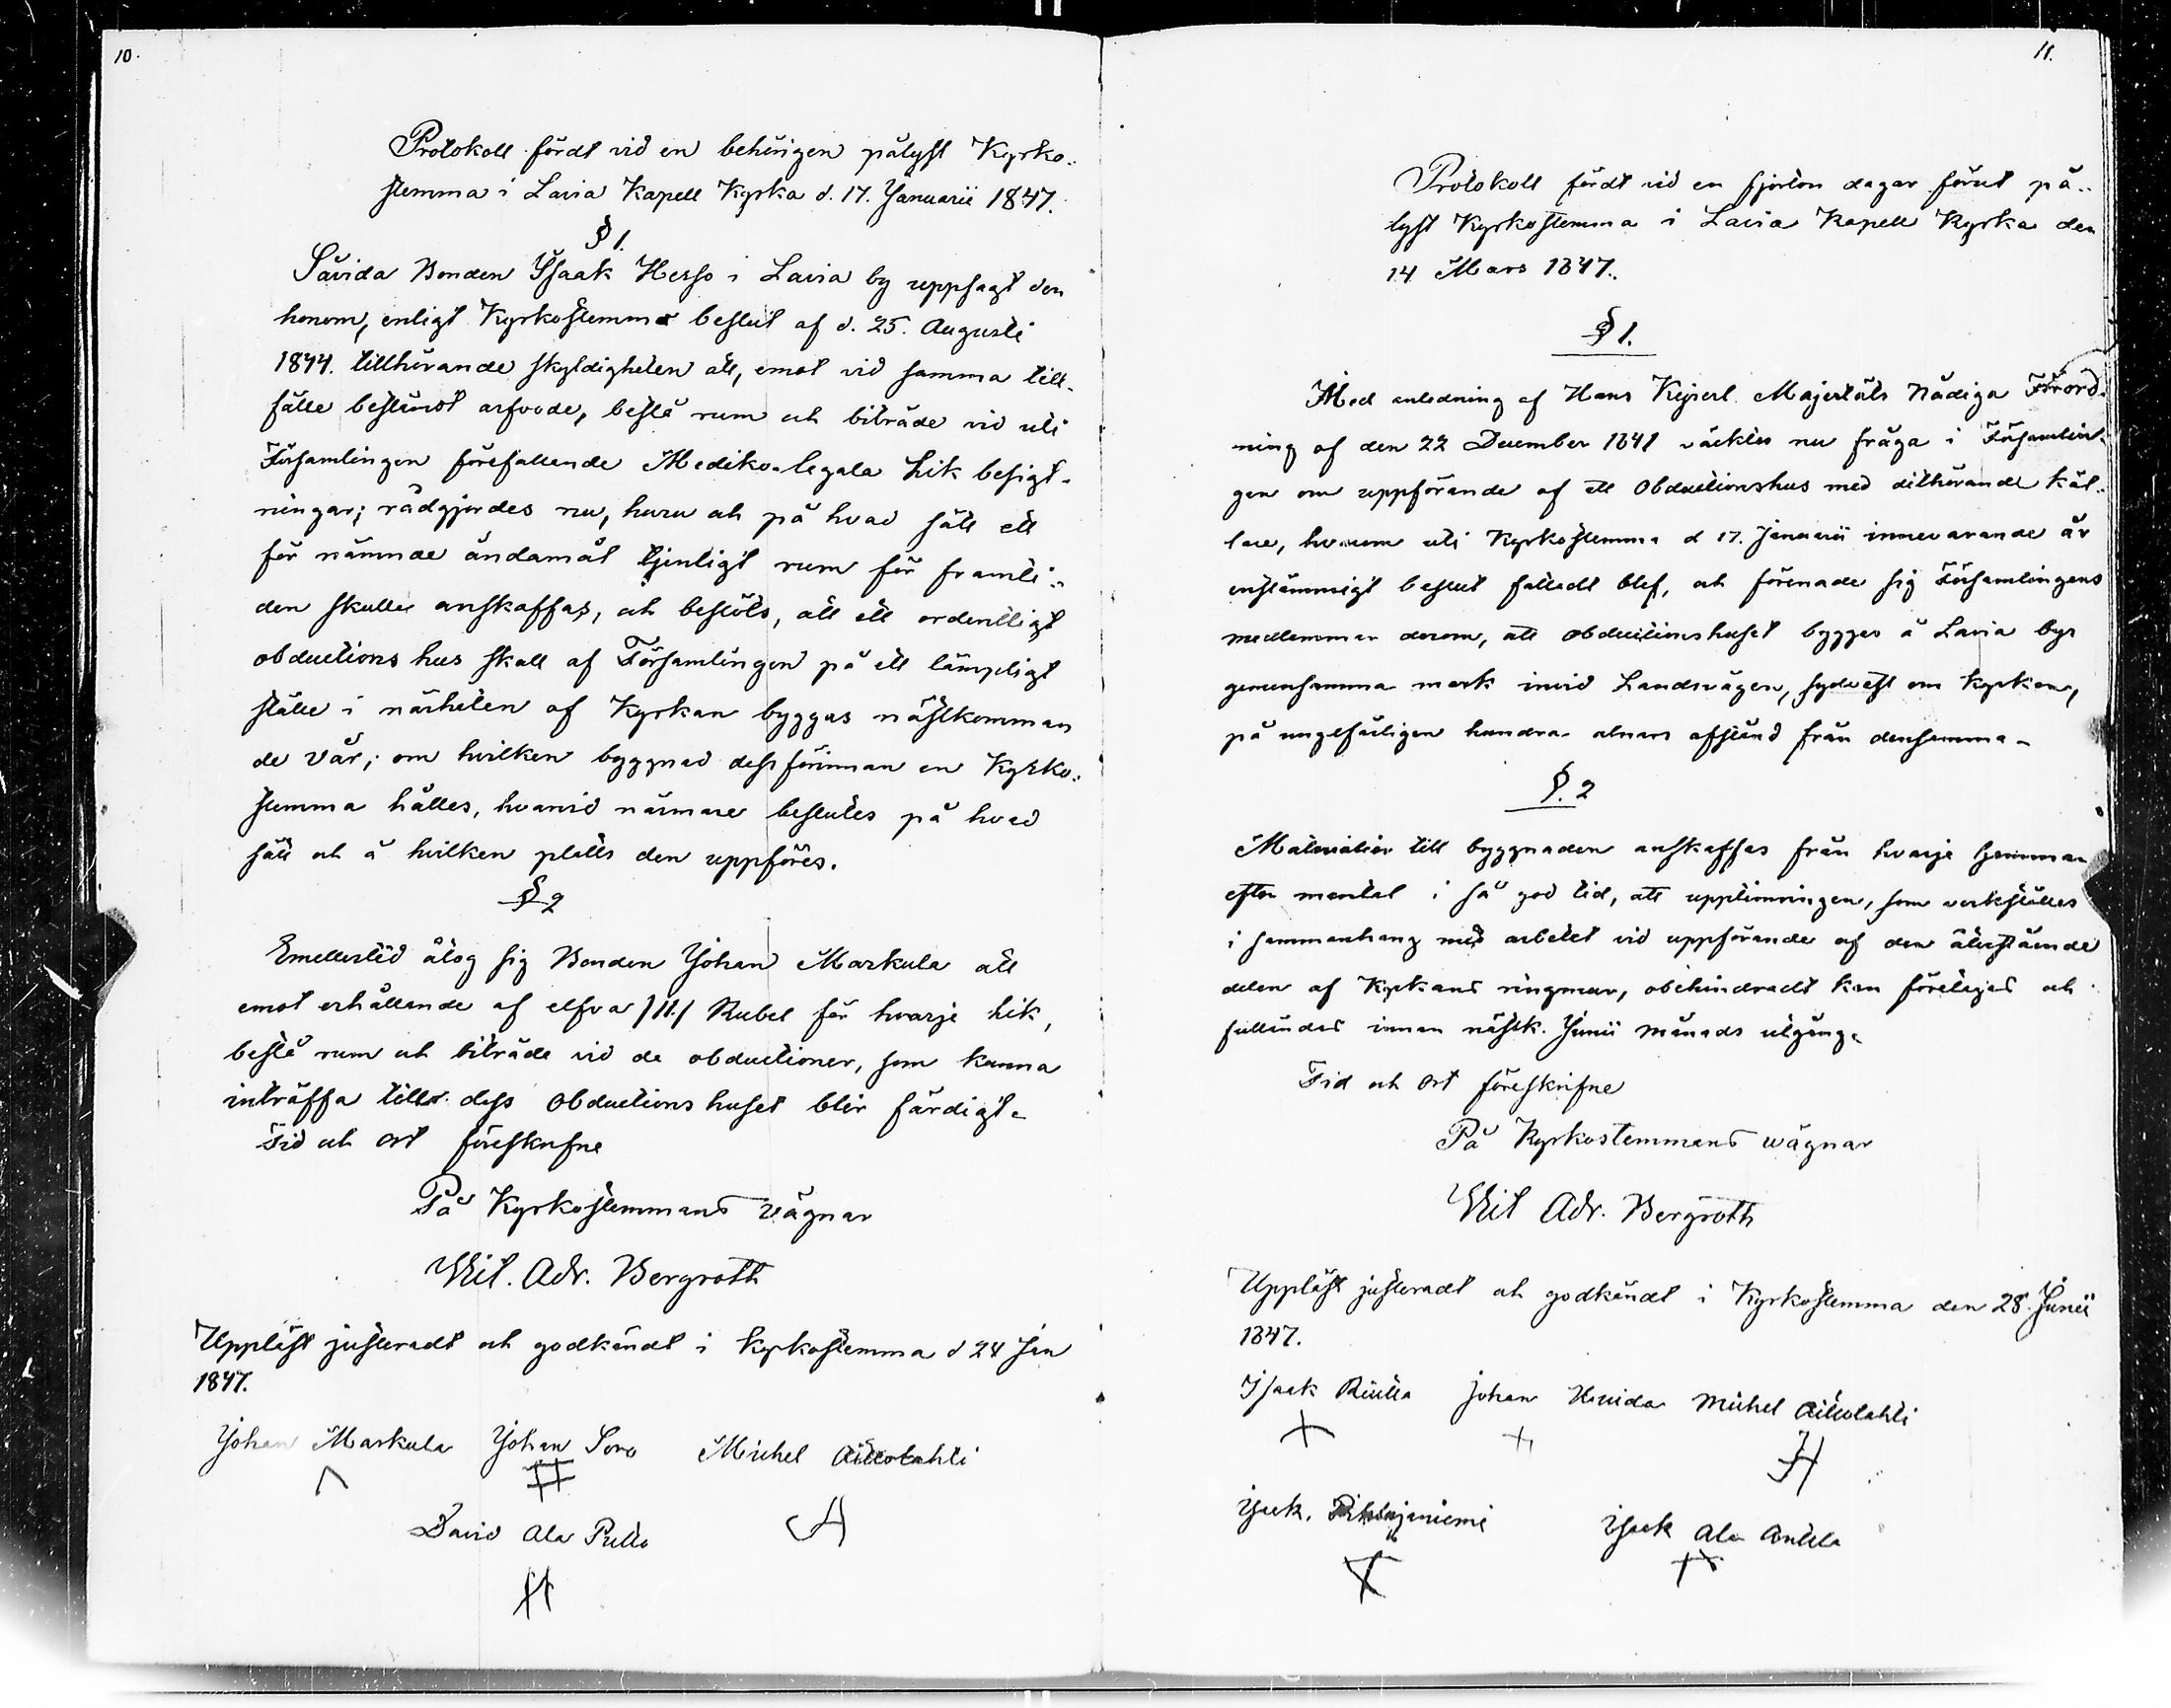 10.
Protokoll fördt vid en behörigen pålyst Kyrko-
stemma i Lavia Kapell Kyrka d. 17. Januarii 1847.
§ 1.
Såvida Bonden Isaak Hesso i Lavia by uppsagt den
honom, enligt Kyrkostemmo beslut af d. 25. Augusti
1844. tillhörande skyldigheten att, emot vid samma till-
fälle bestämdt arfvode, bestå rum och biträde vid uti
Församlingen förefallende Mediko-legala Lik besigt-
ningar; rådgjordes nu, huru och på hvad sätt ett
för nämnde ändamål tjenligt rum för framti-
den skulle anskaffas, och beslöts, att ett ordentligt
obductions hus skall af Församlingen på ett lämpligt
ställe i närheten af Kyrkan byggas nästkomman
de Vår; om hvilken byggnad dessförinnan en Kyrko-
stemma hålles, hvarvid närmare beslutes på hvad
sätt och å hvilken platts den uppföres.
§ 2
Emellertid åtog sig Bonden Johan Markula att
emot erhållande af elfva /11./ Rubel för hvarje Lik,
bestå rum och biträde vid de obductioner, som kunna
inträffa till dess Obductions huset blir färdigt.
Tid och Ort föreskrifne
På Kyrkostemmans vägnar
Vit. Adr. Bergroth
Uppläst justeradt och godkändt i Kyrkostemma d 24 Jan
1847.
Johan Markula Johan Soro Michel Aittolahti
David Ala Pullo
11.
Protokoll fördt vid en fjorton dagar förut på-
lyst Kyrkostemma i Lavia Kapell Kyrka den
14 Mars 1847.
§ 1.
Med anledning af Hans Kejserl. Majestäts Nådiga Förord-
ning af den 22 December 1841 väcktes nu fråga i Församlin-
gen om uppförande af ett Obductionshus med dithörande käl-
lare, hvarom uti Kyrkostemma d 17. Januarii innevarande år
enstämmigt beslut fattadt blef, och förenade sig Församlingens
medlemmar derom, att obductionshuset bygges å Lavia bys
gemensamma mark invid Landsvägen, sydvest om Kyrkan,
på ungefärligen hundra alnars afstånd från densamma.
§. 2
Materialier till byggnaden anskaffas från hvarje hemman
efter mantal i så god tid, att upptimringen, som verkställes
i sammanhang med arbetet vid uppförande af den återstående
delen af Kyrkans ringmur, obehindradt kan företagas och
fulländas innan nästk. Junii Månads utgång.
Tid och Ort föreskrifne
På Kyrkostemmans wägnar
Vit Adr. Bergroth
Uppläst justeradt och godkändt i Kyrkostemma den 28. Junii
1847.
Isaak Johan Michel Aittolahti
Isaak. Isaak Ala Anttila